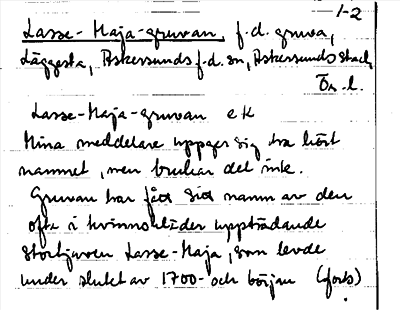 1-2
Lasse-Maja-gruvan, f.d. gruva,
Läggesta, Askersunds f.d. sn, Askersunds stad,
Ör. l.
Lasse-Maja-gruvan e K
Mina meddelare uppger sig ha hört
namnet, men brukar det ink.
Gruvan har fått sitt namn av den
ofta i kvinnokläder uppträdande
stortjuven Lasse-Maja, som levde
under slutet av 1700- och början (forts)